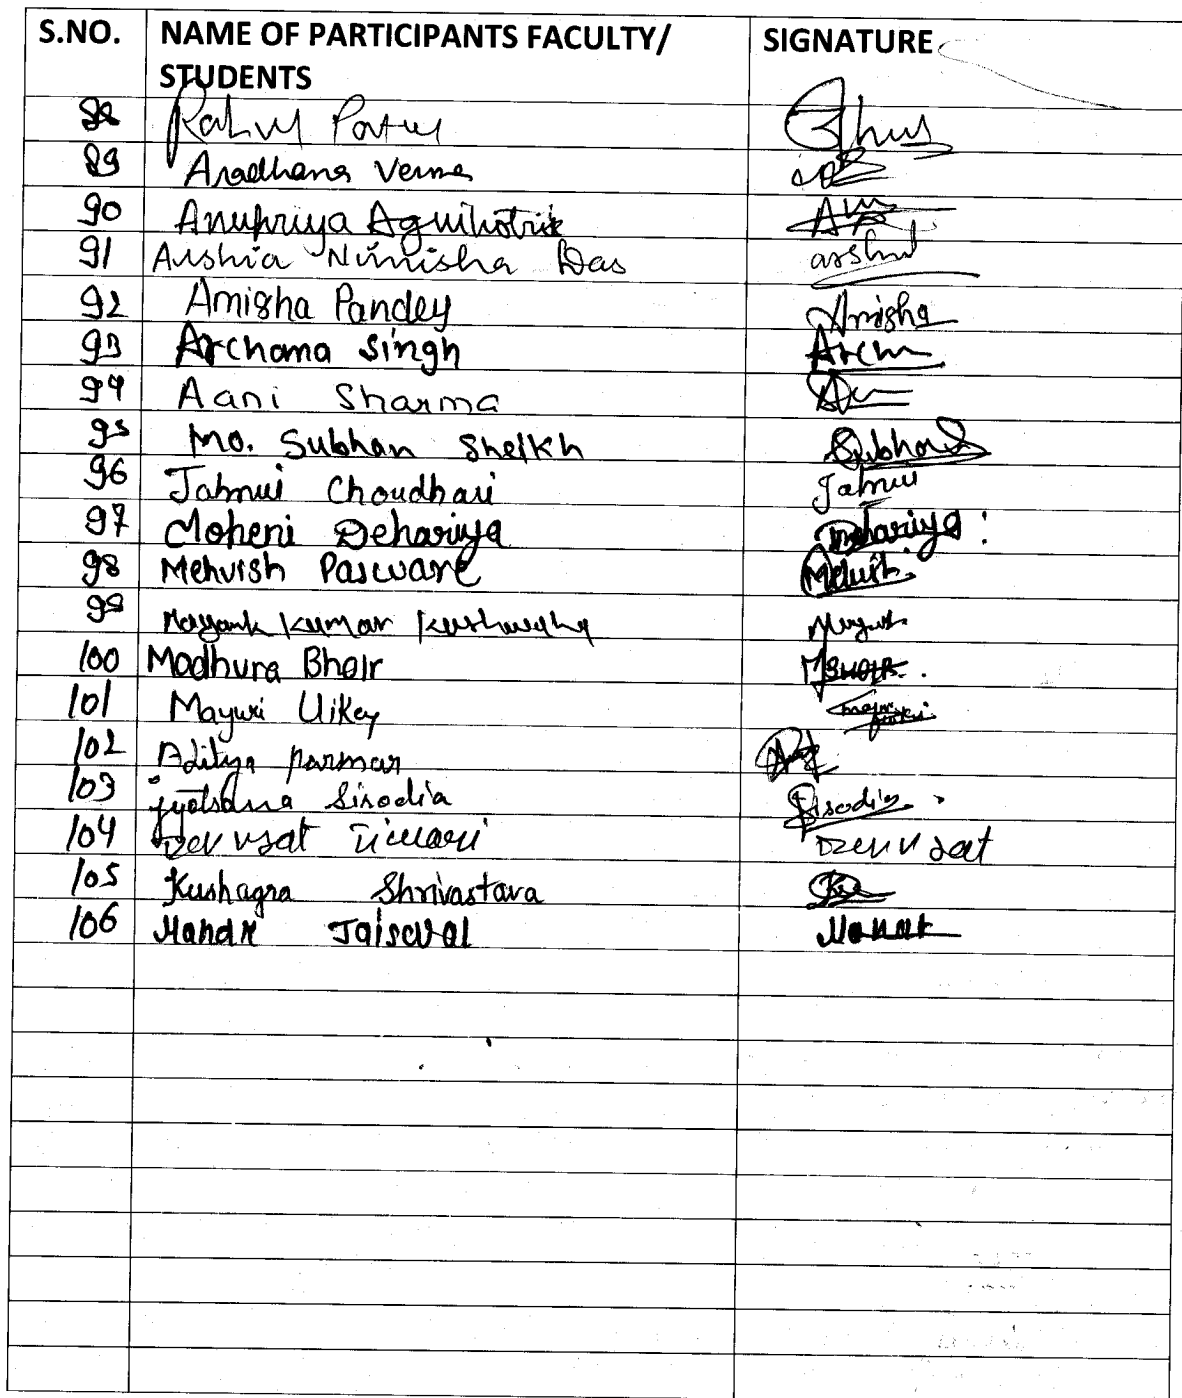 S.NO. NAME OF PARTICIPANTS FACULTY/ SIGNATURE
STUDENTS
88 Rahul
89 Aradhana Verma
90 Anupriya Agnihotri
91 Arshia Nimisha Das arshia
92 Amisha Pandey Amisha
93 Archana Singh Archn
94 Aani Sharma
95 Mo. Subhan Sheikh Subhan
96 Jahnvi Choudhari Jahnvi
97 Moheni Dehariya Dehariya
98 Mehvish Paseware Mehvish
99 Mayank Kumar Kushwaha Mayank
100 Madhura Bhoir MBhoir.
101 Mayuri Uikey
102 Aditya parmar
103 jyotsana Sisodia Sisodia
104 Dev vrat Tiwari Dev vrat
105 Kushagra Shrivastava
106 Manan Jaiswal